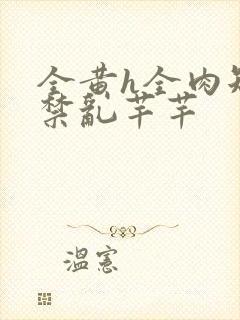 全黄h全肉短
禁乱芊芊
温宪